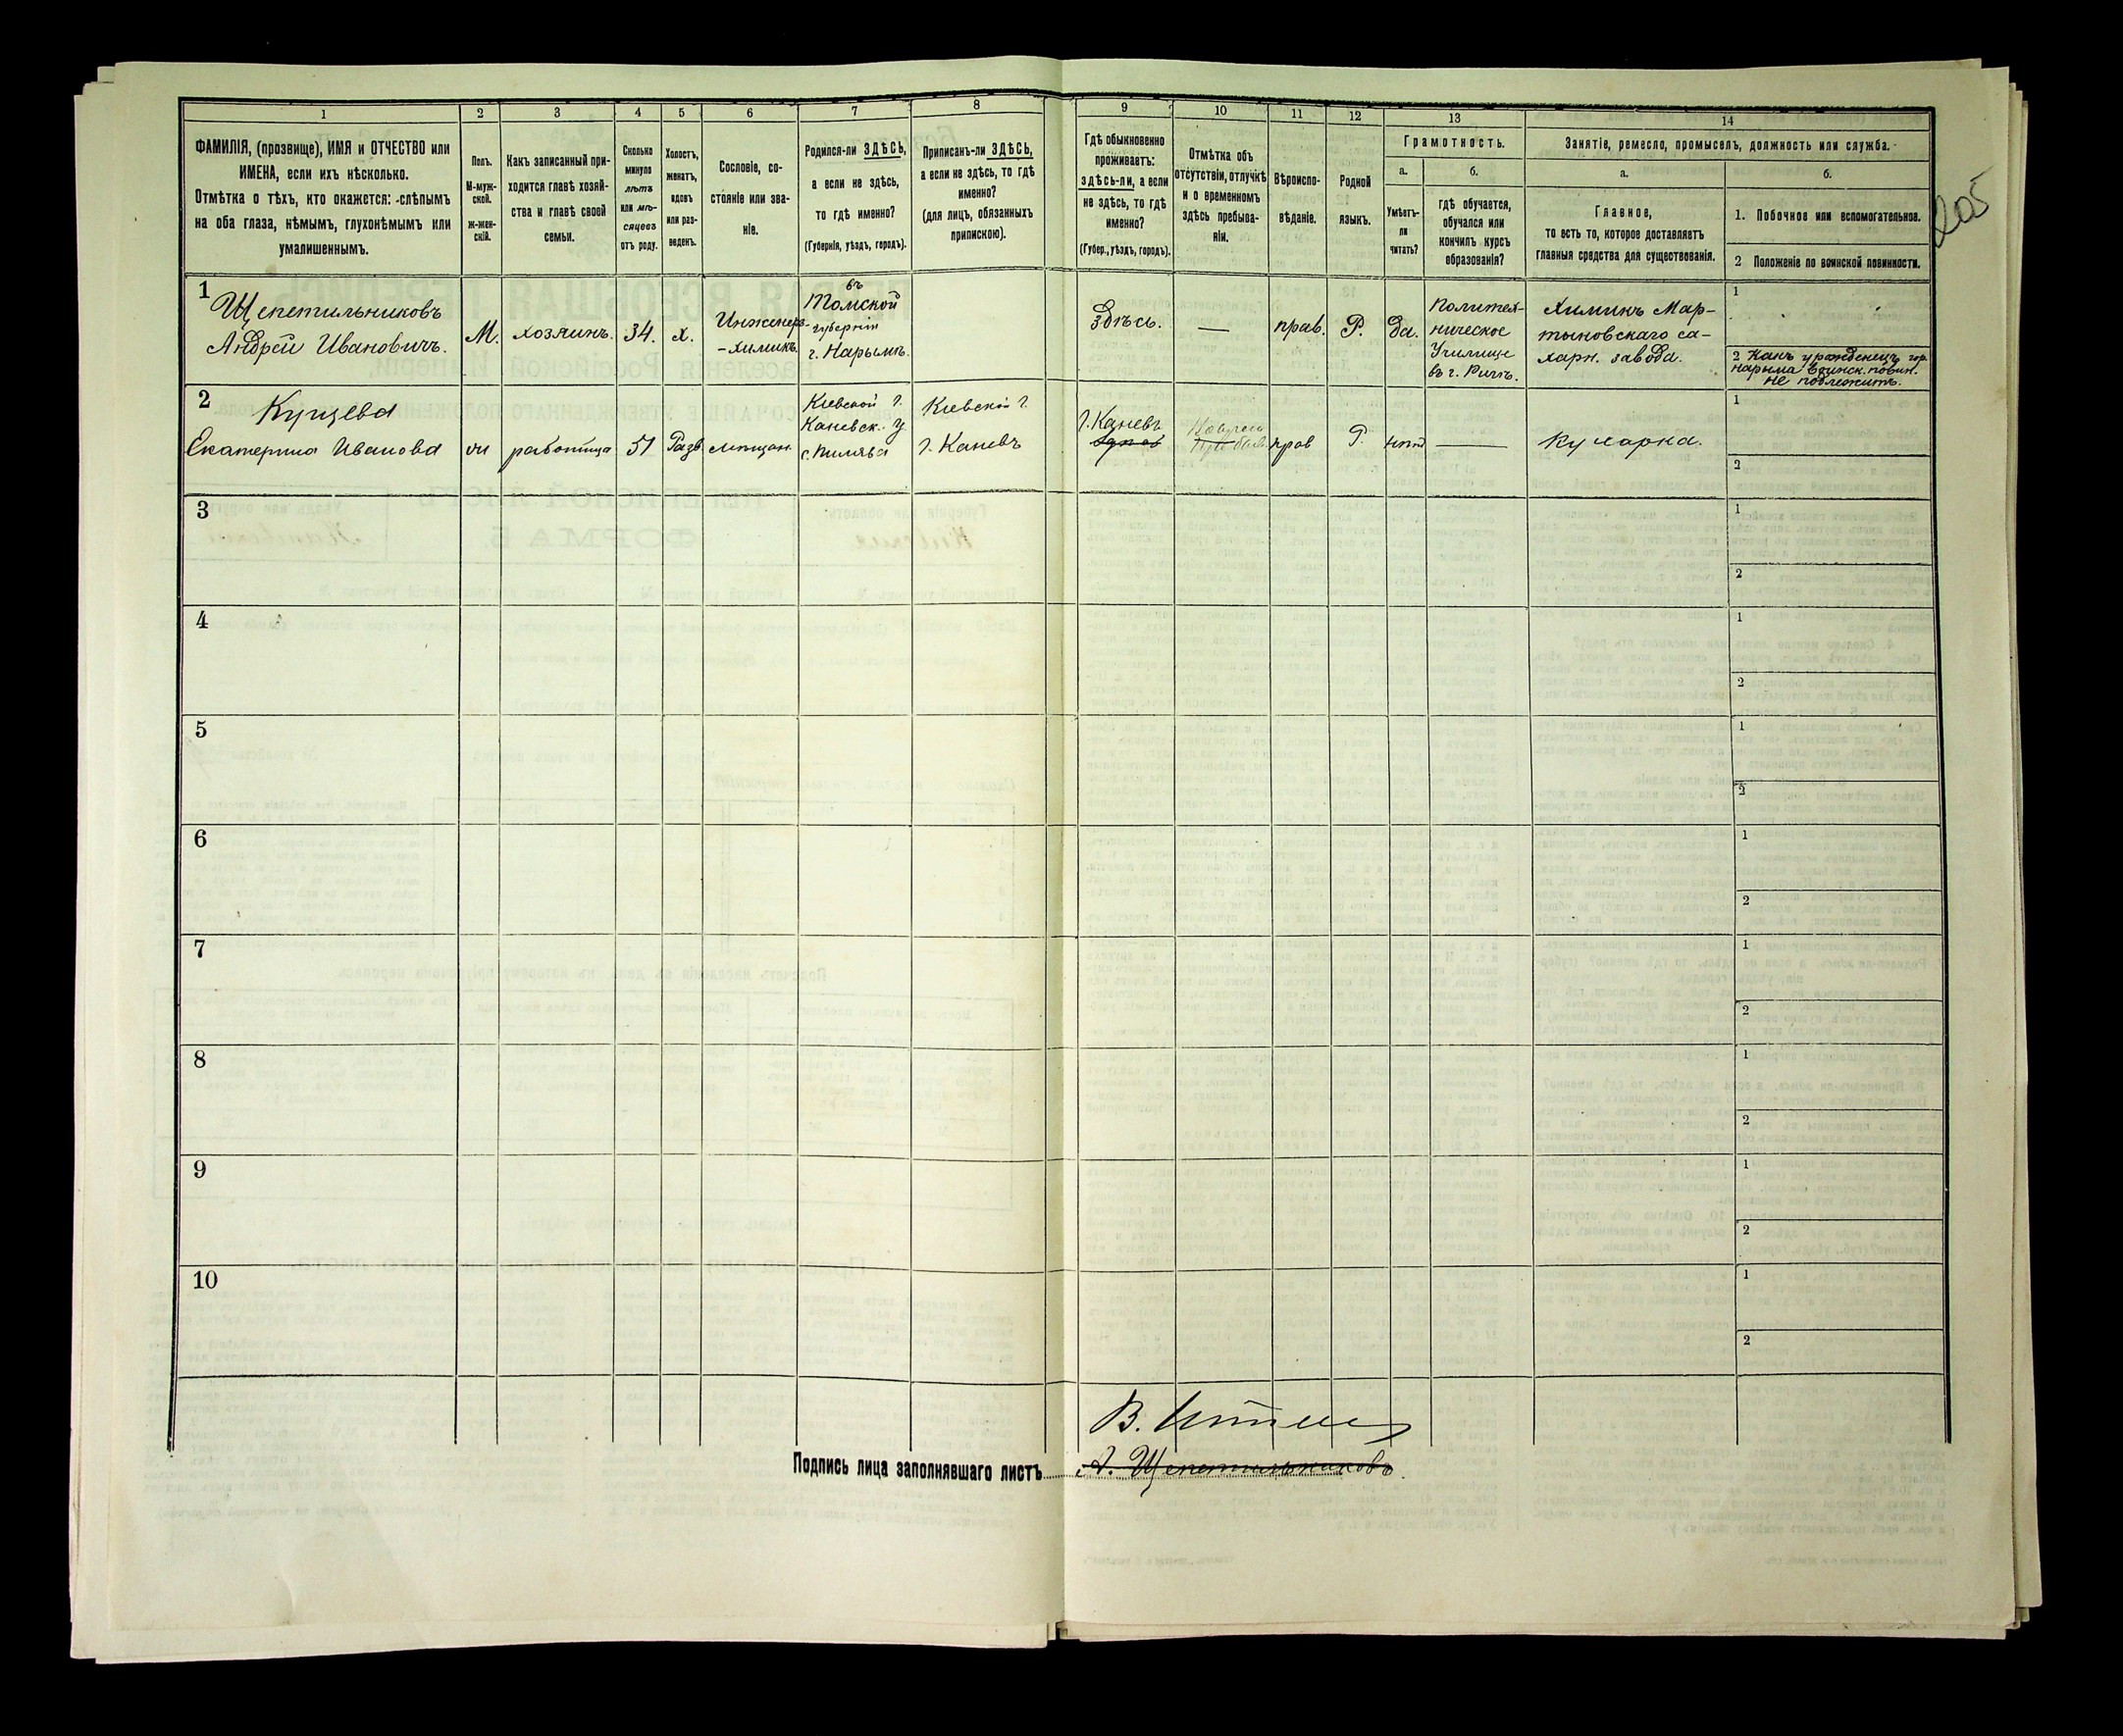 205
1 2 3 4 5 6 7 8 9 10 11 12 13 14
ФАМИЛІЯ, (прозвище), ИМЯ и ОТЧЕСТВО или
ИМЕНА, если ихъ нѣсколько.
Отмѣтка о тѣхъ, кто окажется: слѣпымъ
на оба глаза, нѣмымъ, глухонѣмымъ или
умалишеннымъ.
Полъ.
М-муж-
ской.
ж-жен-
скій.
Какъ записанный при-
ходится главѣ хозяй-
ства и главѣ своей
семьи.
Сколько
минуло
лѣтъ
или мѣ-
сяцевъ
отъ роду.
Холостъ,
женатъ,
вдовъ
или раз-
веденъ.
Сословіе, со-
стояніе или зва-
ніе.
Родился-ли ЗДѢСЬ,
а если не здѣсь,
то гдѣ именно?
(Губернія, уѣздъ, городъ).
Приписанъ-ли ЗДѢСЬ,
а если не здѣсь, то гдѣ
именно?
(для лицъ, обязанныхъ
припискою).
Гдѣ обыкновенно
проживаетъ:
здѣсь-ли, а если
не здѣсь, то гдѣ
именно?
(Губер., уѣздъ, городъ).
Отмѣтка объ
отсутствіи, отлучкѣ
и о временномъ
здѣсь пребыва-
ніи.
Вѣроиспо-
вѣданіе.
Родной
языкъ.
Грамотность.
а.
Умѣетъ-
ли
читать?
б.
гдѣ обучается,
обучался или
кончилъ курсъ
образованія?
Занятіе, ремесло, промыселъ, должность или служба.
а.
Главное,
то есть то, которое доставляетъ
главныя средства для существованія.
б.
1. Побочное или вспомогательное.
2 Положеніе по воинской повинности.
1
Щепетильниковъ
Андрей Ивановичъ.
М.
хозяинъ.
34.
х.
Инженеръ-
-химикъ.
въ
Томской
губерніи
г. Нарымѣ.
Здѣсь.
—
прав.
Р.
да.
Политех-
ническое
Училище
въ г. Ригѣ.
Химикъ Мар-
тыновскаго са-
харн. завода.
1
2 Какъ урожденецъ гор.
Нарыма воинск. повин.
не подлежитъ.
2
Екатерина Иванова
работница
51
Разв
мѣщан.
Кіевской г.
Каневск. у
с. Пилява
Кіевской г.
г. Каневъ
г. Каневъ
прав
Р.
нѣт
—
Кухарка.
1
2
3
1
2
4
1
2
5
1
2
6
1
2
7
1
2
8
1
2
9
1
2
10
1
2
Подпись лица заполнявшаго листъ
А. Щепетильниковъ.